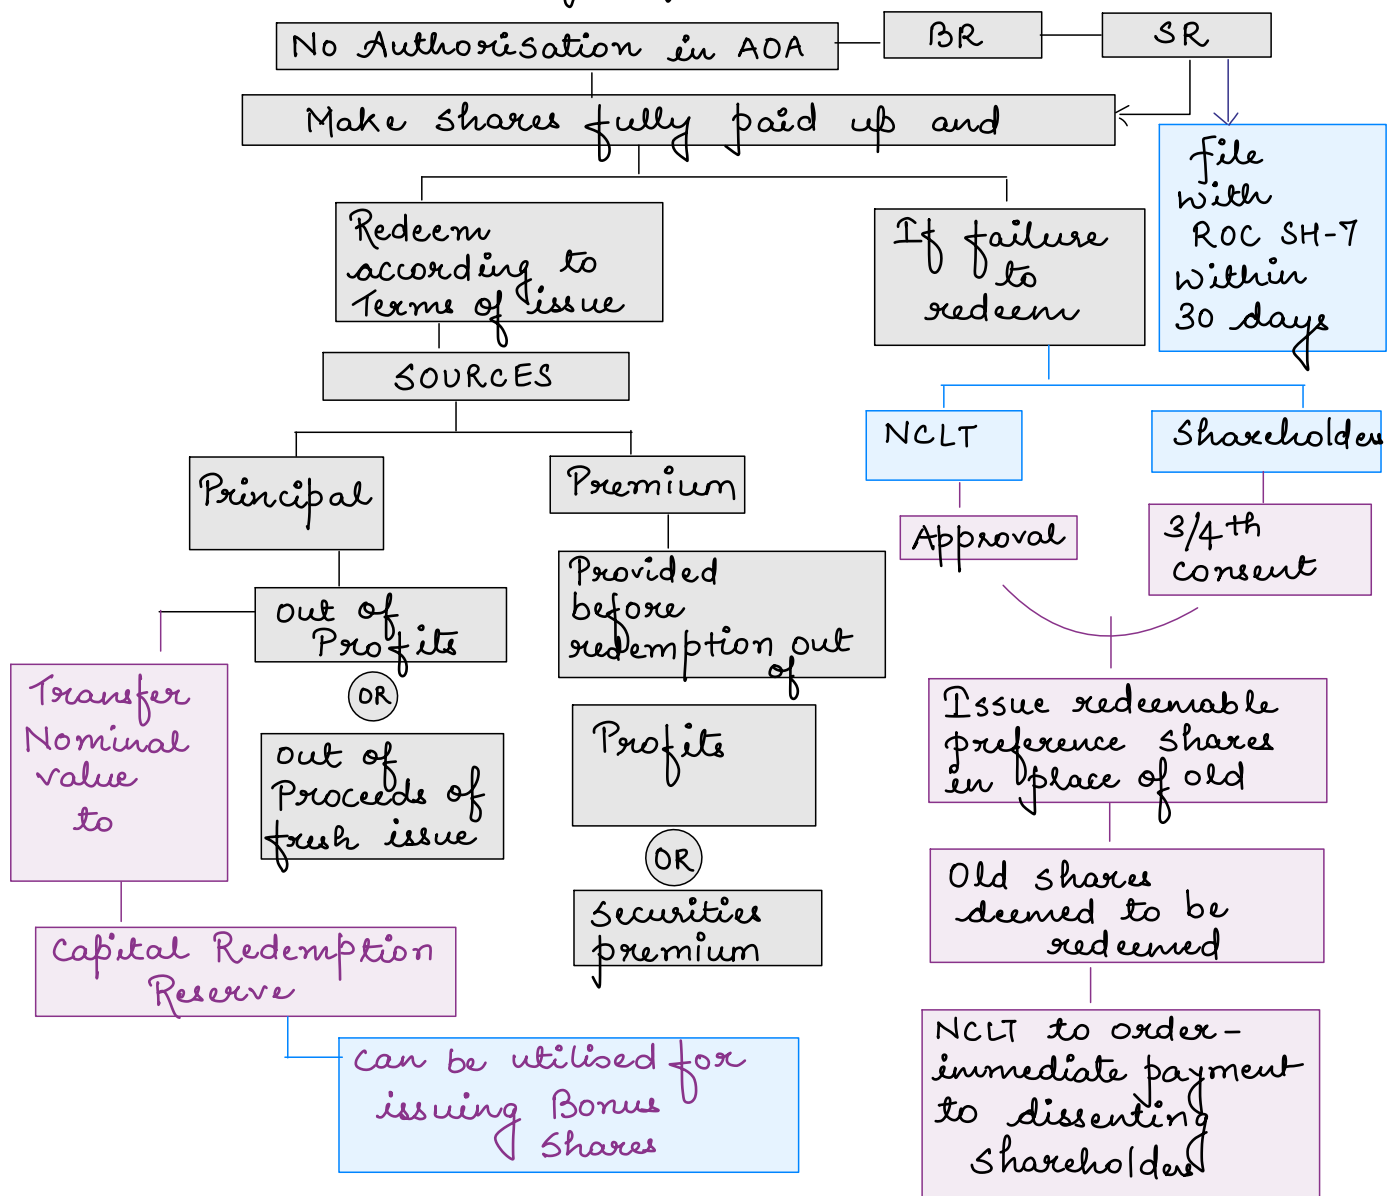 No Authorisation in AOA
BR
SR
Make shares fully paid up and
file
with
ROC SH-7
within
30 days
Redeem
according to
Terms of issue
If failure
to
redeem
SOURCES
NCLT
Shareholders
Principal
Premium
Approval
3/4th
consent
out of
Profits
OR
out of
Proceeds of
fresh issue
Provided
before
redemption out
of
Profits
OR
Securities
premium
Transfer
Nominal
value
to
Capital Redemption
Reserve
can be utilised for
issuing Bonus
Shares
Issue redeemable
preference shares
in place of old
Old shares
deemed to be
redeemed
NCLT to order-
immediate payment
to dissenting
Shareholders